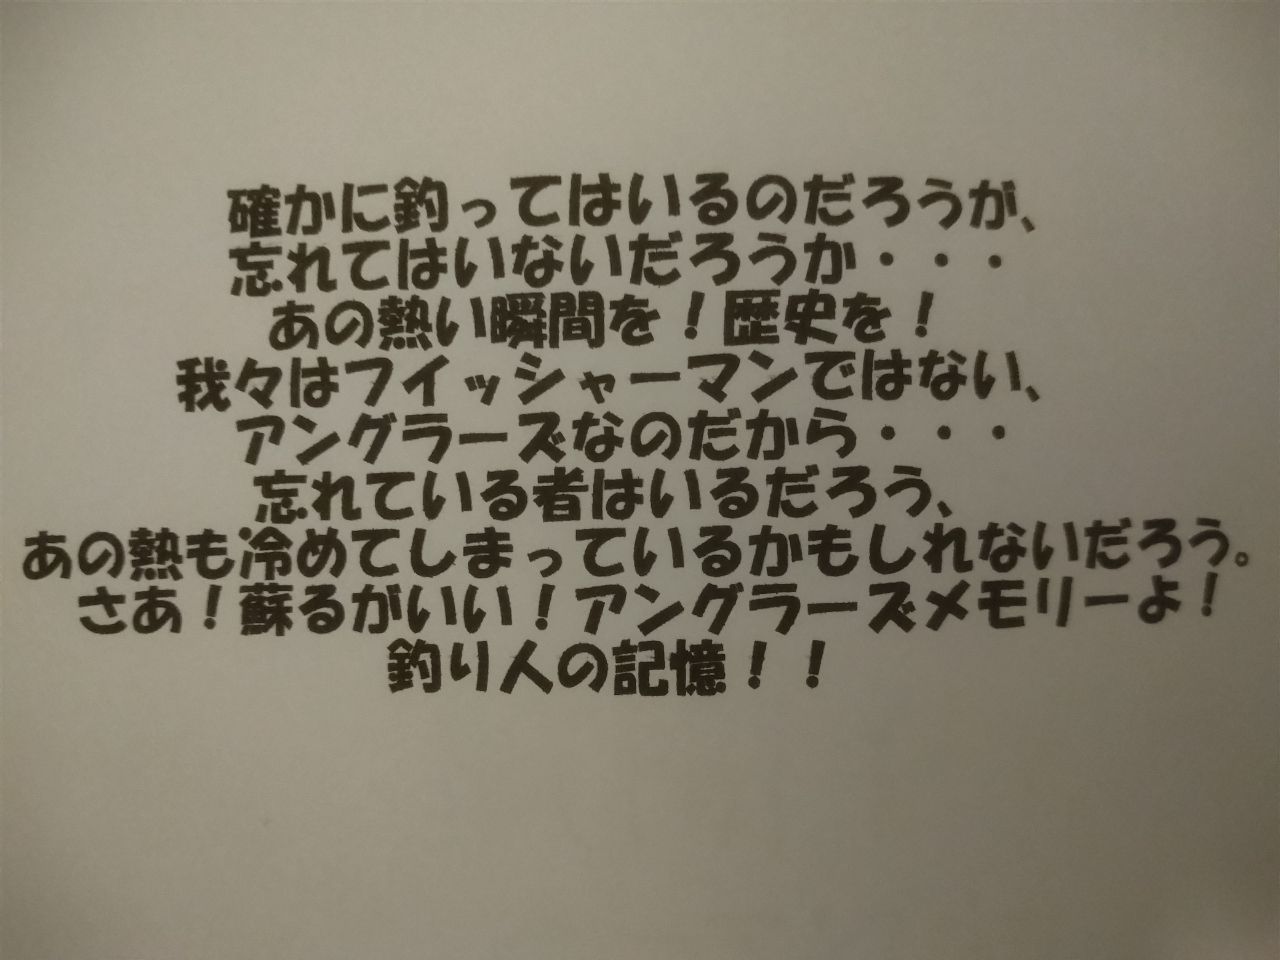 確かに釣ってはいるのだろうが、
忘れてはいないだろうか・・・
あの熱い瞬間を！歴史を！
我々はフイッシャーマンではない、
アングラーズなのだから・・・
忘れている者はいるだろう、
あの熱も冷めてしまっているかもしれないだろう。
さあ！蘇るがいい！アングラーズメモリーよ！
釣り人の記憶！！